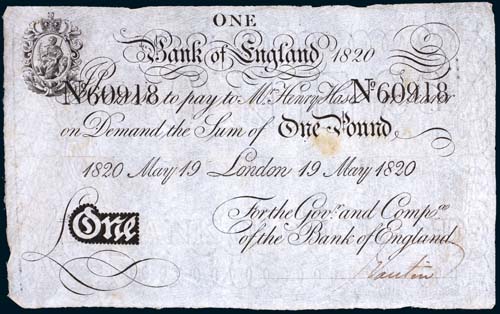 ONE
Bank of England 1820
No 60918 to pay to Mr. Henry Hase No 60918
on Demand the Sum of One Pound
1820 May 19 London 19 May 1820
For the Govr. and Compa.
One of the Bank of England